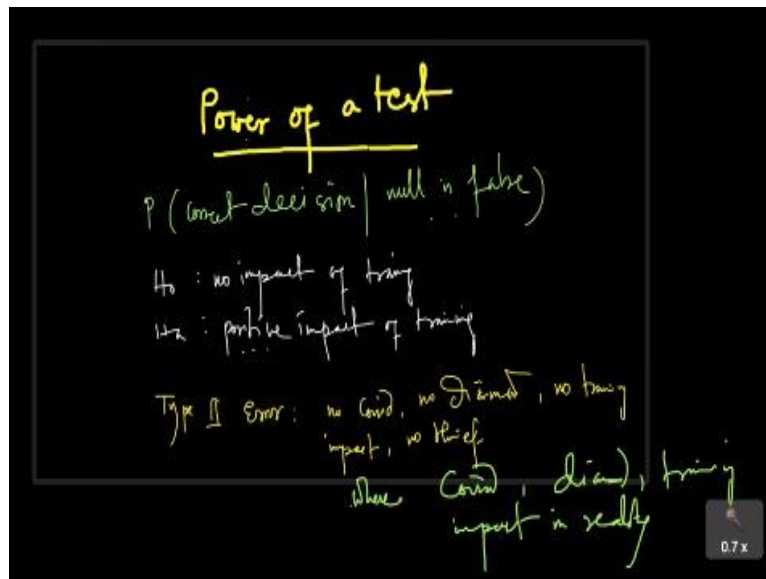 Power of a test
P (correct decision | null is false)
H₀ : no impact of traing
Ha : positive impact of training
Type II Error : no Covid, no Diamond, no traing
impact, no thief
where Covid, diamd, training
impact in reality
0.7 x